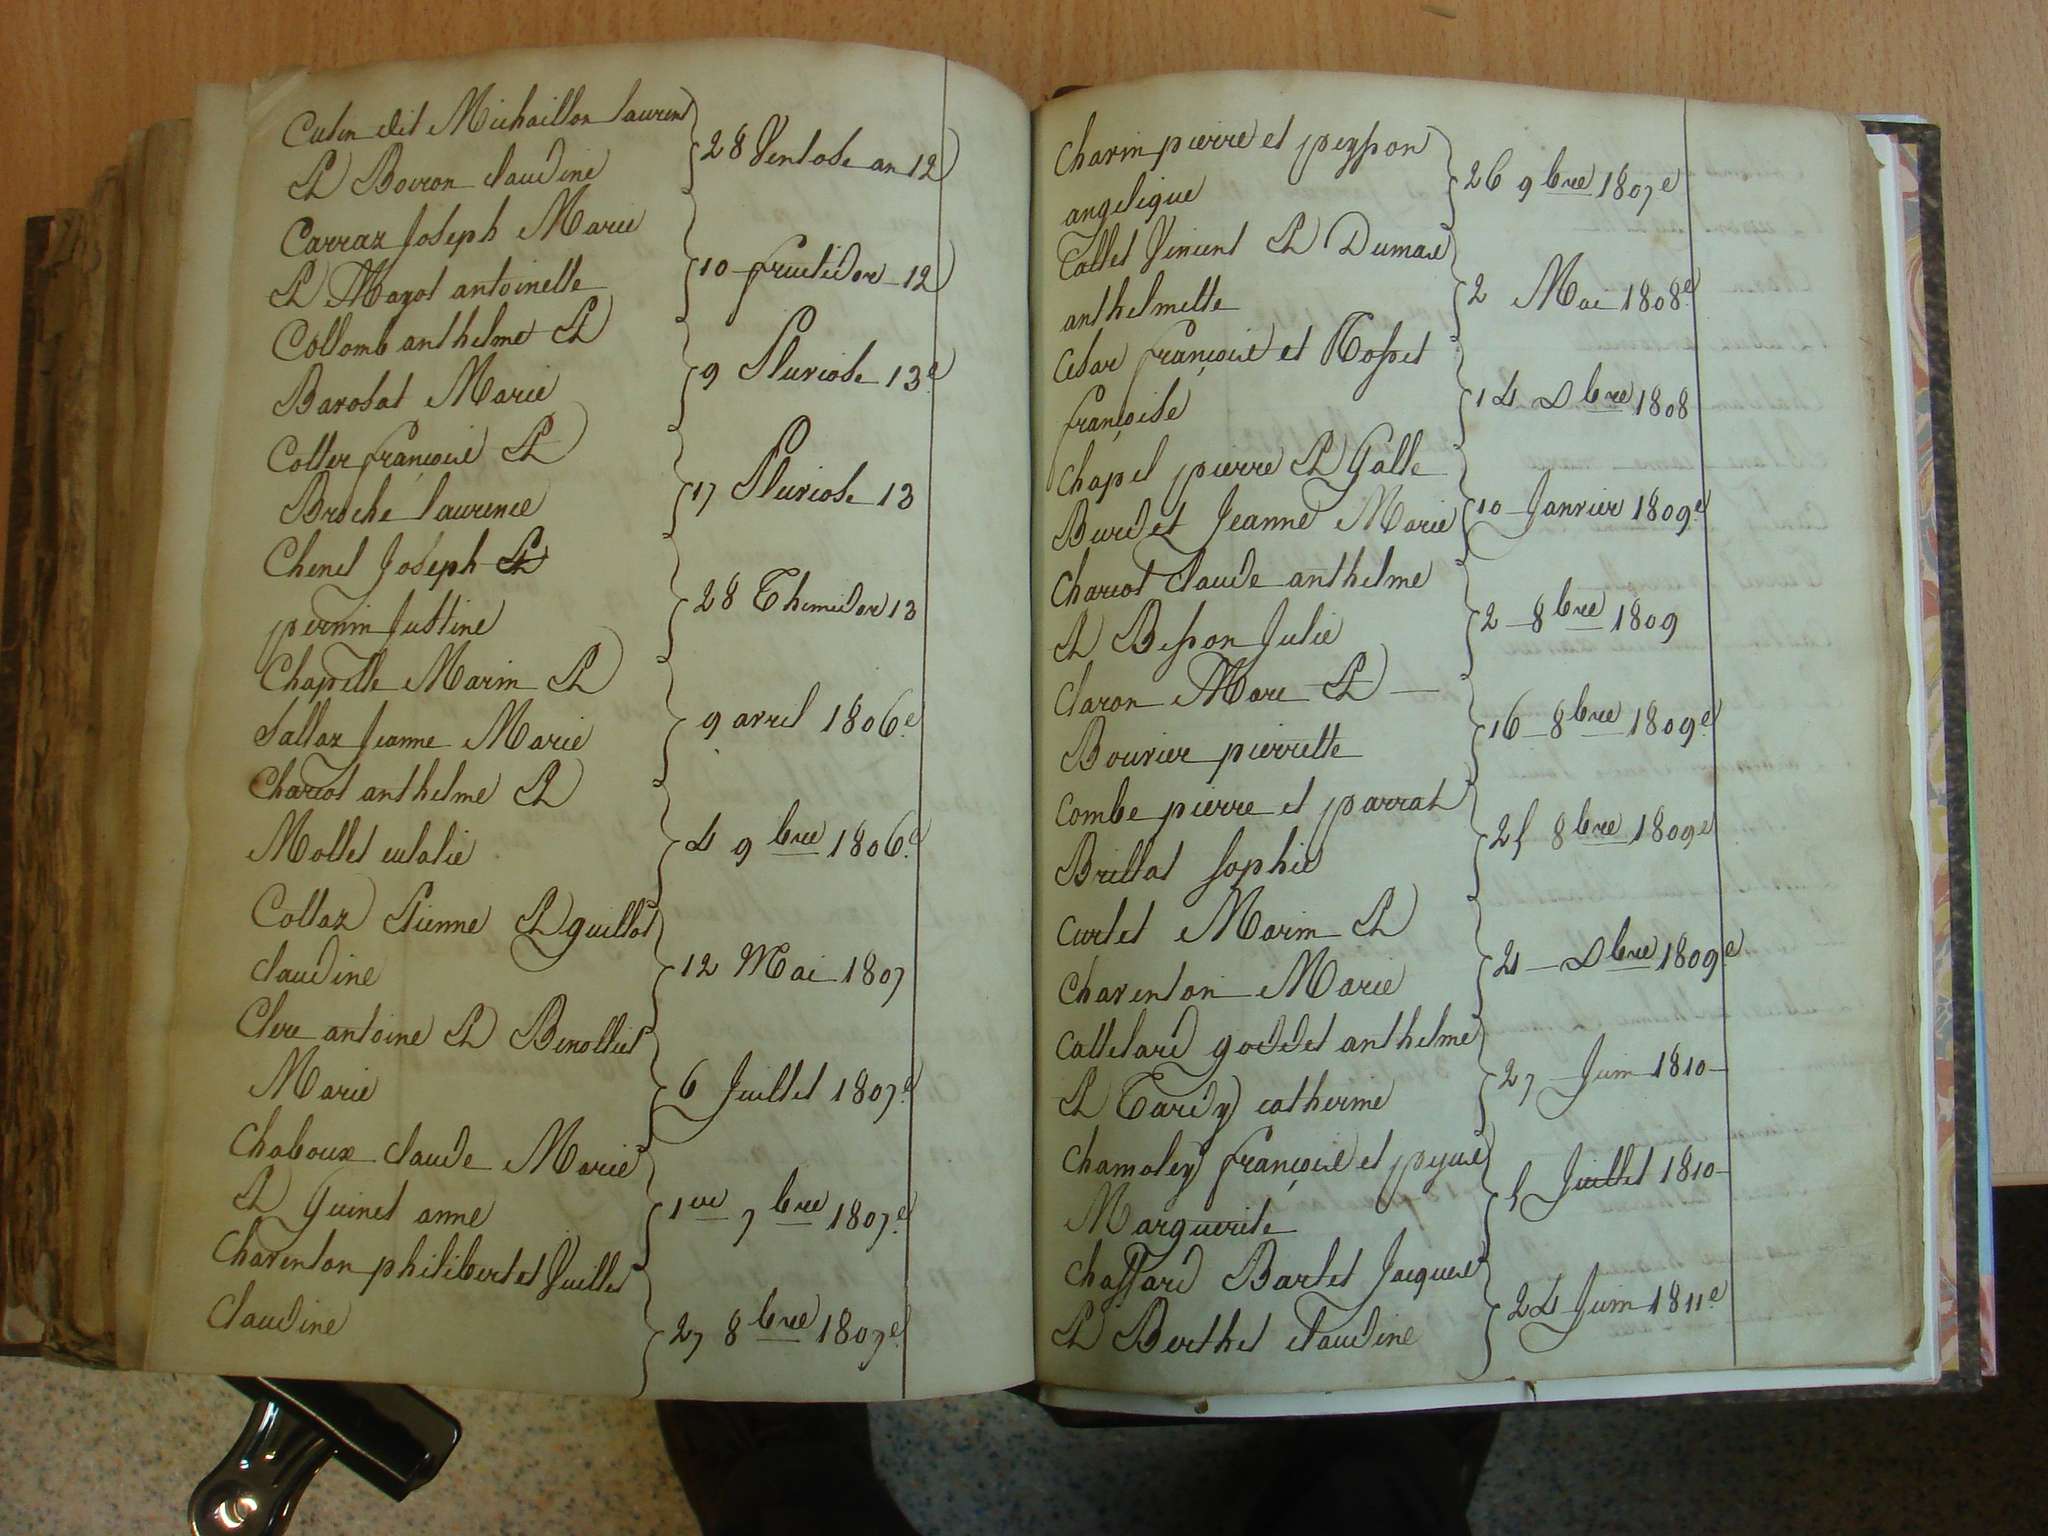 Cutin dit Michaillon laurent
Et Boiron claudine
28 Ventose an 12
Carraz Joseph Marie
Et Magot antoinette
10 fructidor 12
Collomb anthelme Et
Barosat Marie
9 Pluviose 13e
Coller françois Et
Broche laurence
17 Pluviose 13
Chenet Joseph Et
pernin Justine
28 Thermidor 13
Chapelle Marin Et
Sallaz Jeanne Marie
9 avril 1806e
Chariot anthelme Et
Mollet eulalie
4 9bre 1806e
Collaz Etienne Et guillot
claudine
12 Mai 1807
Clerc antoine Et Benolliet
Marie
6 Juillet 1807e
Chaboux claude Marie
Et Guinet anne
1er 7bre 1807e
Charenton philibert et Juillet
Claudine
27 8bre 1807e
Charin pierre et peysson
angelique
26 9bre 1807e
Collet Vincent Et Dumas
anthelmette
2 Mai 1808e
Cesar françois et Rosset
françoise
14 Dbre 1808
Chapel pierre Et Galle
Burdet Jeanne Marie
10 Janvier 1809e
Chariot claude anthelme
Et Besson Julie
2 8bre 1809
Claron Marc Et
Bouvier pierrette
16 8bre 1809e
Combe pierre et parrat
Brillat sophie
25 8bre 1809e
Curtet Marin Et
Charenton Marie
Dbre 1809e
Cattelard goddet anthelme
Et Tardy catherine
27 Juin 1810
Chamoley françois et
Marguerite
5 Juillet 1810
Chaffard Barlet Jacques
Et Berthet claudine
24 Juin 1811e